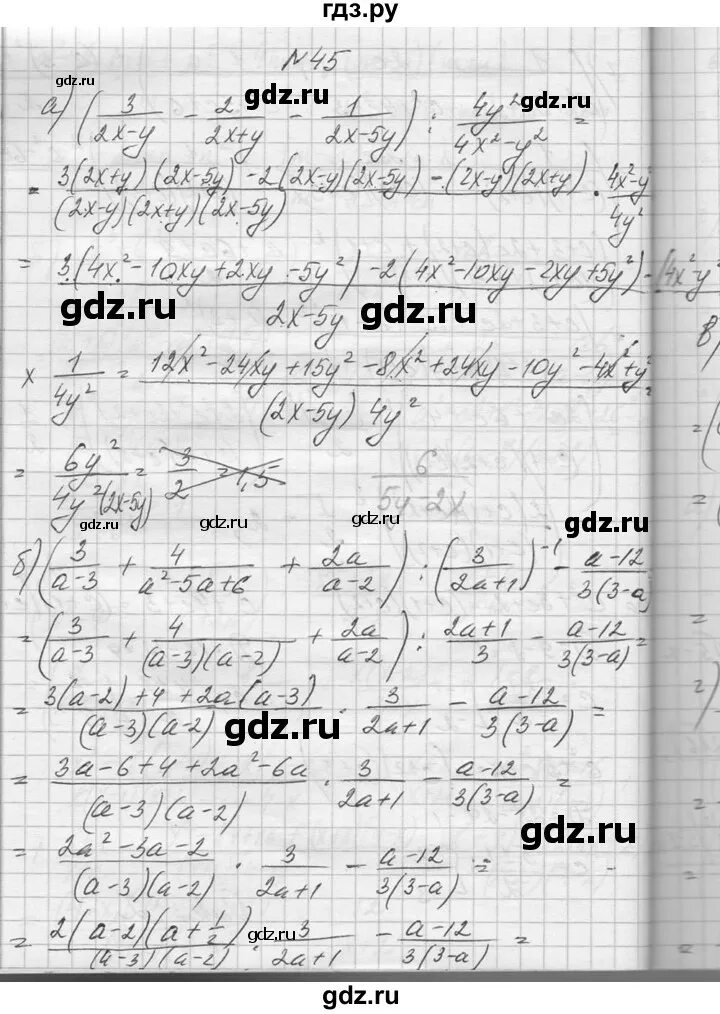 гдз.ру
N 45
gdz.ru gdz.ru gdz.ru
а) (3/(2x-y) - 2/(2x+y) - 1/(2x-5y)) : 4y²/(4x²-y²) =
= (3(2x+y)(2x-5y) - 2(2x-y)(2x-5y) - (2x-y)(2x+y))/((2x-y)(2x+y)(2x-5y)) · (4x²-y²)/4y²
gdz.ru gdz.ru gdz.ru
= (3(4x²-10xy+2xy-5y²) - 2(4x²-10xy-2xy+5y²) - (4x²-y²
gdz.ru gdz.ru
)/(2x-5y)
× 1/4y² = (12x²-24xy+15y²-8x²+24xy-10y²-4x²+y²)/((2x-5y) 4y²)
= 6y²/(4y²(2x-5y)) = 3/2 = 1,5 6/(5y-2x)
gdz.ru gdz.ru gdz.ru gdz.ru
б) (3/(a-3) + 4/(a²-5a+6) + 2a/(a-2)) : (3/(2a+1))⁻¹ - (a-12)/(3(3-a))
= (3/(a-3) + 4/((a-3)(a-2)) + 2a/(a-2)) : (2a+1)/3 - (a-12)/(3(3-a)) =
gdz.ru gdz.ru gdz.ru
= (3(a-2)+4+2a(a-3))/((a-3)(a-2)) · 3/(2a+1) - (a-12)/(3(3-a)) =
gdz.ru
= (3a-6+4+2a²-6a)/((a-3)(a-2)) · 3/(2a+1) - (a-12)/(3(3-a)) =
gdz.ru gdz.ru
= (2a²-3a-2)/((a-3)(a-2)) · 3/(2a+1) - (a-12)/(3(3-a)) =
gdz.ru gdz.ru gdz.ru
= (2(a-2)(a+1/2))/((a-3)(a-2)) · 3/(2a+1) - (a-12)/(3(3-a)) =
gdz.ru